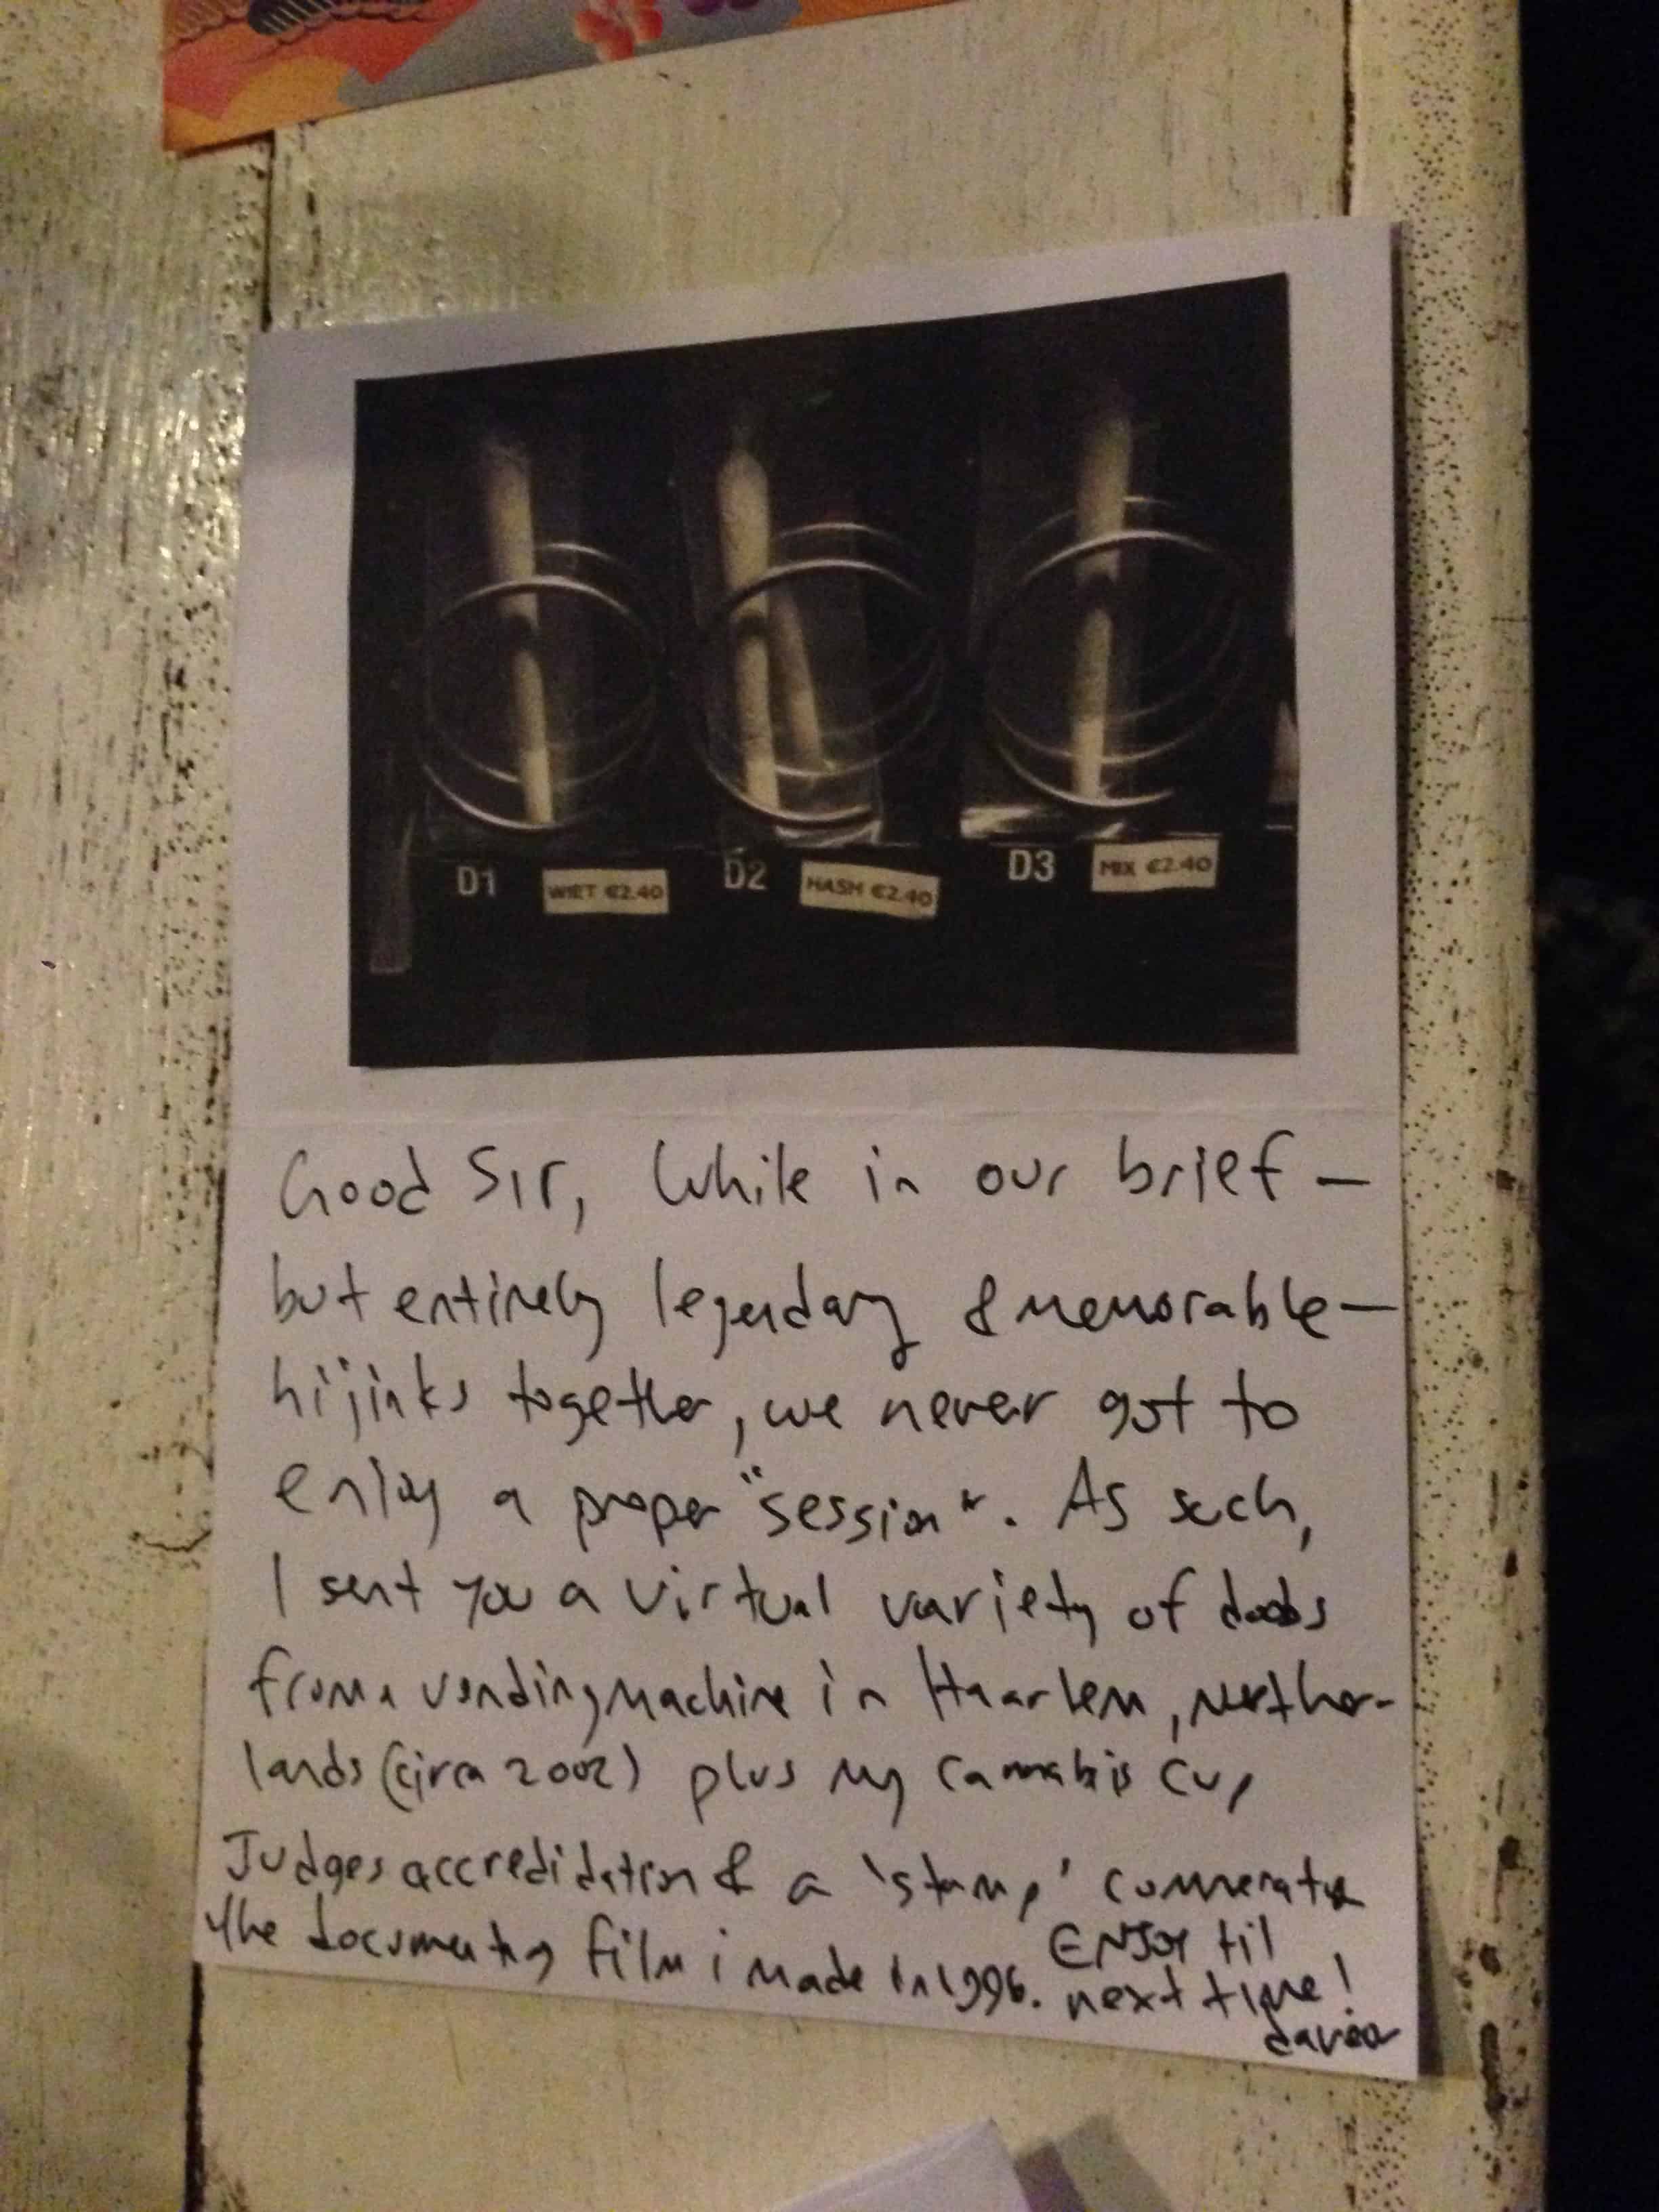 D1 WIET €2.40 D2 HASH €2.40 D3 MIX €2.40
Good Sir, While in our brief —
but entirely legendary & memorable —
hijinks together, we never got to
enjoy a proper "session". As such,
I sent you a virtual variety of doobs
from a vending machine in Haarlem, Nether-
lands (circa 2002) plus my cannabis cup
Judges accredidation & a 'stamp'
the documentary film i made in 1996. ENJOY til
next time!